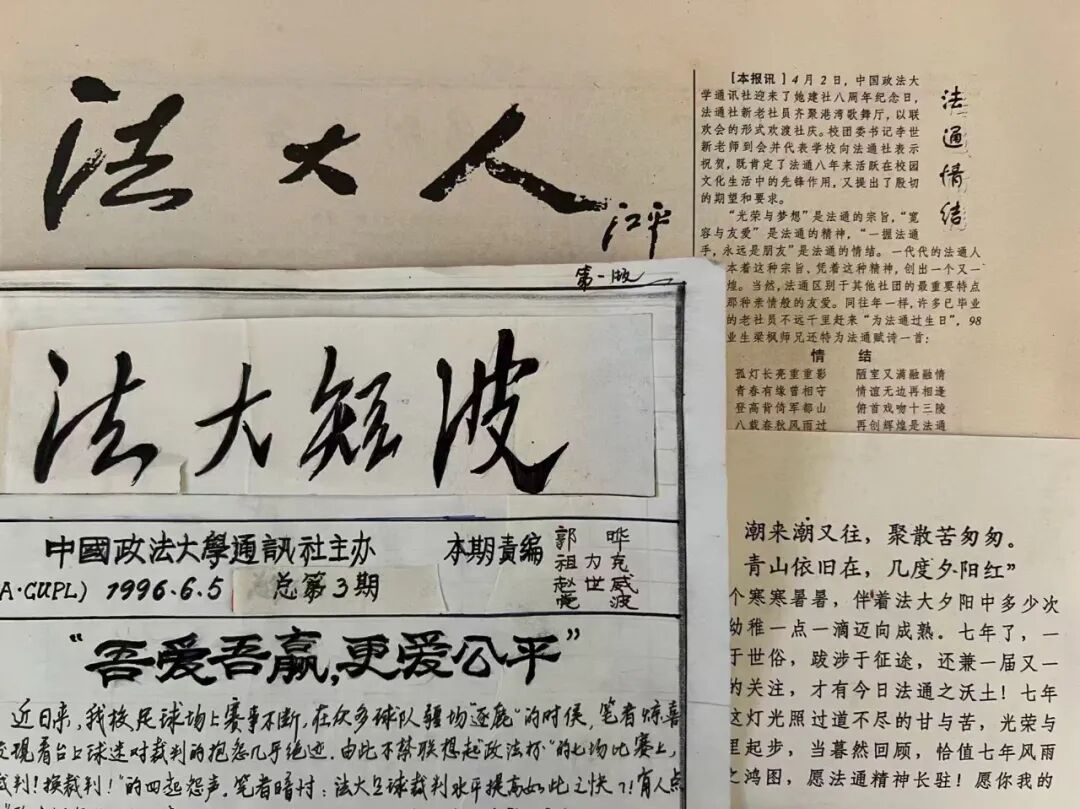 法大人
江平
法通情结
【本报讯】4月2日，中国政法大
学通讯社迎来了她建社八周年纪念日，
法通社新老社员齐聚港湾歌舞厅，以联
欢会的形式欢渡社庆。校团委书记李世
新老师到会并代表学校向法通社表示
祝贺，既肯定了法通八年来活跃在校园
文化生活中的先锋作用，又提出了殷切
的期望和要求。
“光荣与梦想”是法通的宗旨，“宽
容与友爱”是法通的精神，“一握法通
手，永远是朋友”是法通的情结。一代代的法通人
本着这种宗旨、凭着这种精神，创出一个又一
煌。当然，法通区别于其他社团的最重要特点
那种亲情般的友爱。同往年一样，许多已毕业
的老社员不远千里赶来“为法通过生日”，98
业生梁枫师兄还特为法通赋诗一首：
情 结
孤灯长亮重重影 陋室又满融融情
青春有缘曾相守 情谊无边再相逢
登高背倚军都山 俯首戏吻十三陵
八载春秋风雨过 再创辉煌是法通
第一版
法大短波
中國政法大學通訊社主办
本期責编
郭 晔
祖 为 克
赵 世 威
波
A·CUPL) 1996.6.5 总第3期
“吾爱吾赢,更爱公平”
近日来,我校足球场上赛事不断,在众多球队疆场“逐鹿”的时候,笔者惊喜
发现看台上球迷对裁判的抱怨几乎绝迹.由此不禁联想起“政法杯”的七场比赛上,
裁判!换裁判!”的四起怨声.笔者暗忖:法大足球裁判水平提高如此之快?!有人点
潮来潮又往，聚散苦匆匆。
青山依旧在，几度夕阳红”
个寒寒暑暑，伴着法大夕阳中多少次
幼稚一点一滴迈向成熟。七年了，一
于世俗，跋涉于征途，还兼一届又一
的关注，才有今日法通之沃土！七年
这灯光照过道不尽的甘与苦，光荣与
里起步，当蓦然回顾，恰值七年风雨
之鸿图，愿法通精神长驻！愿你我的